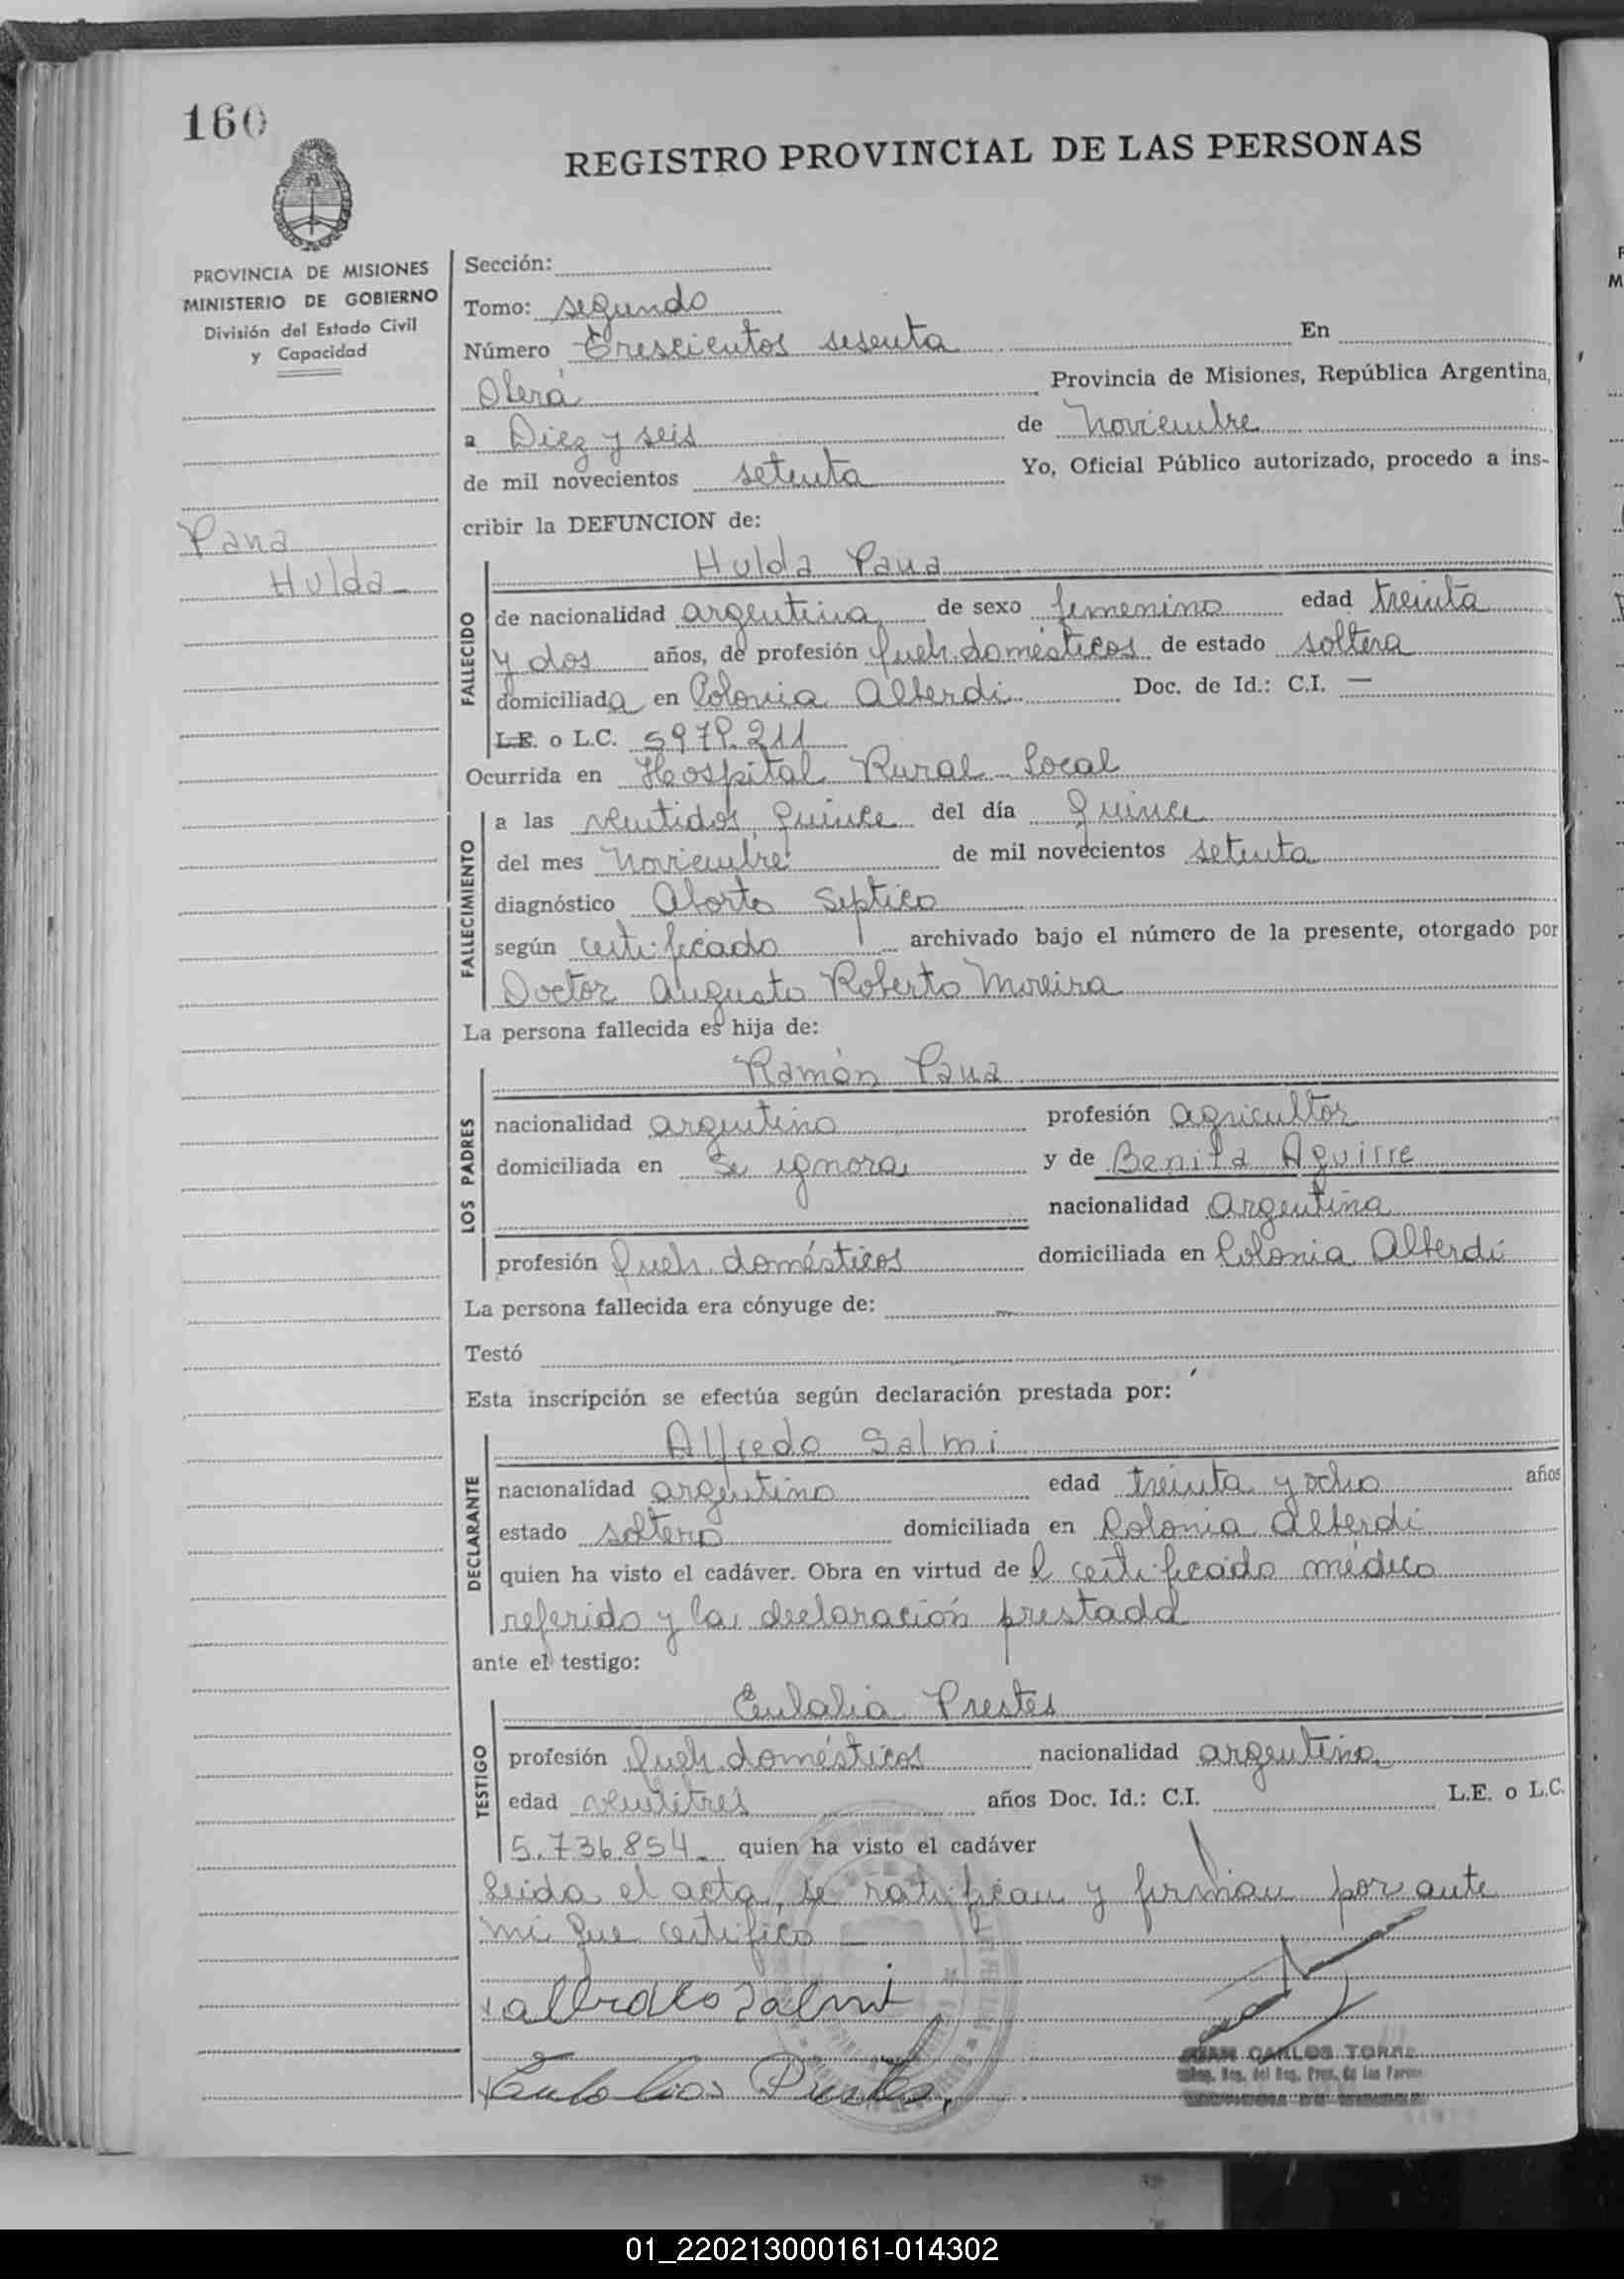 160
REGISTRO PROVINCIAL DE LAS PERSONAS
PROVINCIA DE MISIONES
MINISTERIO DE GOBIERNO
División del Estado Civil
y Capacidad
Pana
Hulda
Sección:
Tomo: segundo
Número Trescientos sesenta En
Oberá Provincia de Misiones, República Argentina,
a Diez y seis de Noviembre
de mil novecientos setenta Yo, Oficial Público autorizado, procedo a ins-
cribir la DEFUNCION de:
Hulda Pana
FALLECIDO
de nacionalidad argentina de sexo femenino edad treinta
y dos años, de profesión queh. domésticos de estado soltera
domiciliada en Colonia Alberdi Doc. de Id.: C.I. —
L.E. o L.C.
Ocurrida en Hospital Rural Local
FALLECIMIENTO
a las ventidos quince del día quince
del mes Noviembre de mil novecientos setenta
diagnóstico Aborto Septico
según certificado archivado bajo el número de la presente, otorgado por
Doctor Augusto Roberto Moreira
La persona fallecida es hija de:
LOS PADRES
Ramón Pana
nacionalidad argentino profesión agricultor
domiciliada en se ignora y de Benita Aguirre
nacionalidad argentina
profesión queh. domésticos domiciliada en Colonia Alberdi
La persona fallecida era cónyuge de:
Testó
Esta inscripción se efectúa según declaración prestada por:
DECLARANTE
Alfredo Salmi
nacionalidad argentino edad treinta y ocho años
estado soltero domiciliada en Colonia Alberdi
quien ha visto el cadáver. Obra en virtud de l certificado médico
referido y la declaración prestada
ante el testigo:
TESTIGO
Eulalia Prestes
profesión queh. domésticos nacionalidad argentina
edad ventitres años Doc. Id.: C.I. L.E. o L.C.
5.736.854 quien ha visto el cadáver
Leida el acta, se ratifican y firman por ante
mi que certifico —
JUAN CARLOS TORRE
01_220213000161-014302